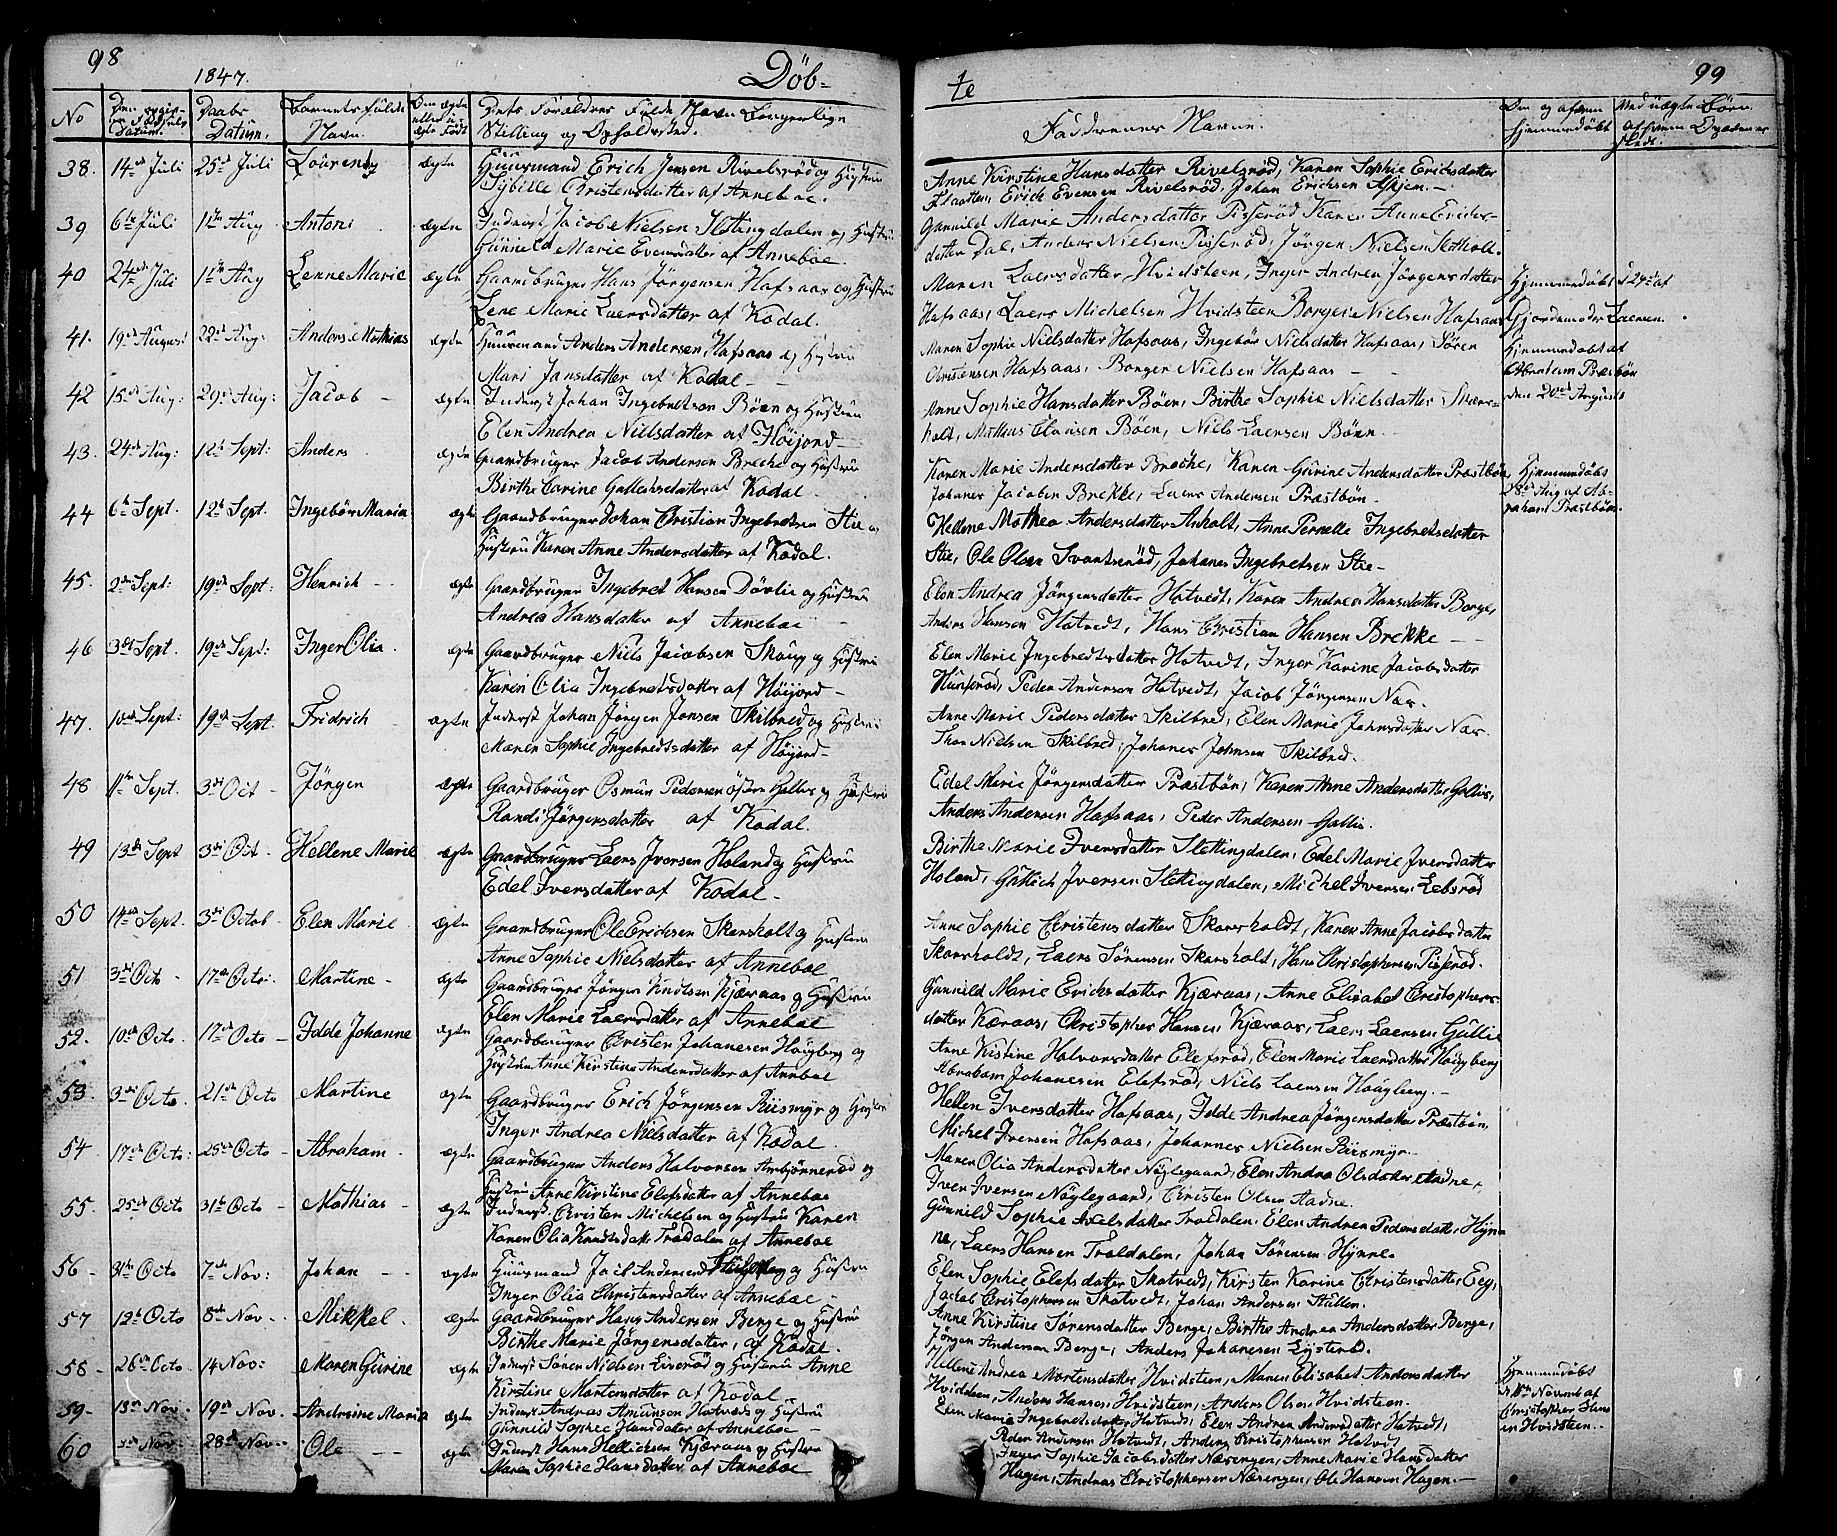 98
1847.
Döb-
No
Datum.
Daabs
Datum.
Barnets fulde
Navn.
ægte Födt
Dets Forældres Fulde Navn Borgerlige
Stilling og Opholdssted.
38. 14de Juli 25de Juli Lourendz ægte Huusmand Erich Jensen Rivelsröd og Hustru
Sybille Christensdatter af Anneboe.
39 6te Juli 1ste Aug Antoni ægte Inderst Jacob Nielsen Slettingdalen og Hustru
Gunnild Marie Evensdatter af Anneboe
40 24de Juli 1ste Aug Lenne Marie ægte Gaardbruger Hans Jörgensen Hafsaas og Hustru
Lene Marie Laersdatter af Kodal.
41. 19de August 22de Aug: Anders Mathias ægte Huusmand Anders Andersen Hafsaas og Hustru
Mari Jansdatter af Kodal -
42 15de Aug: 29de Aug: Jacob - ægte Inderst Johan Ingebretsen Böen og Hustru
Elen Andrea Nielsdatter af Höijord
43. 24de Aug: 12te Sept: Anders ægte Gaardbruger Jacob Andersen Breche og Hustru
Birthe Carine Gulliksdatter af Kodal.
44 6te Sept. 12te Sept. Ingebör Maria ægte Gaardbruger Johan Cristian Ingebretsen Stie og
Hustru Karen Anne Andersdatter af Kodal.
45. 2den Sept: 19de Sept: Henrich - ægte Gaardbruger Ingebret Hansen Dövlie og Hustru
Andrea Hansdatter af Anneboe
46 3die Sept. 19de Sept: Inger Olia. ægte Gaardbruger Niels Jacobsen Skoug og Hustru
Karen Olia Ingebretsdatter af Höijord -
47. 10de Sept: 19de Sept. Fridrich ægte Inderst Johan Jörgen Jonsen Skilbred og Hustru
Maren Sophie Ingebredtsdatter af Höijord -
48 11te Sept. 3die Oct - Jörgen ægte Gaardbruger Osmun Pedersen östre Hallis og Hustru
Randi Jörgensdatter af Kodal.
49 13de Sept 3die Oct. Hellene Marie ægte Gaardbruger Laers Iversen Holand og Hustru
Edel Iversdatter af Kodal -
50 14de Sept. 3die Octob - Elen Marie ægte Gaardbruger Ole Erichsen Skarsholt og Hustru
Anne Sophie Nielsdatter af Anneboe
51 3die Octo - 17de Octo: Martine - ægte Gaardbruger Jörgen Knutsen Kjæraas og Hustru
Elen Marie Laersdatter af Anneboe
52. 10de Octo. 17de Octo - Idde Johanne ægte Gaardbruger Cristen Johanesen Hougberg og
Hustru Anne Kirstine Andersdatter af Anneboe
53. 3die Octo. 21de Octo Martine ægte Gaardbruger Erich Jörgensen Riismyr og Hustru
Inger Andrea Nielsdatter af Kodal.
54 17de Octo: 25de Octo - Abraham. ægte Gaardbruger Anders Halvorsen Asbjönneröd og
Hustru Anne Kirstine Elefsdatter af Anneboe
55. 25de Octo 31te Octo - Mathias - ægte Inderst. Cristen Michelsen og Hustru Karen
Karen Olia Knudtsdatt: Troldalen af Anneboe
56 - 31te Octo 7de Nov: Johan - - ægte Huusmand Jacob Andersen og Hustru
Inger Olia Christensdatter af Anneboe -
57 12te Octo 8de Nov - Mikkel. ægte Gaardbruger Hans Andersen Berge og Hustru
Birthe Marie Jörgensdatter, af Kodal.
58 - 26de Octo. 14 Nov: Maren Gurine ægte Inderst Sören Nielsen Liseröd og Hustru Anne
Kirstine Martensdatter af Kodal -
59 - 13de Nov. 19de Nov. Andrine Maria ægte Inderst Andras Amundsen Hotvedt og Hustru
Gunnild Sophie Hansdatter af Anneboe -
60 Nov: 28de Nov - Ole - ægte Inderst Hans Hellichsen Kjæraas og Hustru
Maren Sophie Hansdatter af Anneboe
te
99
Faddrenes Navne.
Den og af hvem
hjemmedöbt
Ved uægte Börn
Anne Kirstine Hansdatter Rivelsröd, Karen Sophie Ericksdatter
Flaatten, Erich Evensen Rivelsröd, Johan Erichsen Askjem. -
Gunnild Marie Andersdatter Pisseröd Karen Anne Erichs-
datter Dal, Anders Nielsen Pisseröd, Jörgen Nielsen Skotholt.
Maren Laersdatter Hvidsteen, Inger Andrea Jörgensdatter
Hafsaas, Laers Michelsen Hvidsteen Borger Nielsen Hafsaas
Hjemmedöbt d 24de af
Gjordemoder Laersen.
Maren Sophie Nielsdatter Hafsaas, Ingebör Nielsdatter Hafsaas, Sören
Christensen Hafsaas, Borger Nielsen Hafsaas - -
Hjemmedöbt af
Abraham Præstbön
den 20de August
Anne Sophie Hansdatter Böen, Birthe Sophie Nielsdatter Skars-
holt, Mathias Clausen Böen, Niels Laersen Böen -
Karen Marie Andersdatter Breche, Karen Gurine Andersdatter Præstbön
Johanes Jacobsen Brekke, Laers Andersen Præstbön -
Hjemmedöbt
28de Aug af Ab-
raham Præstbön.
Hellene Mathea Andersdatter Anholt, Anne Pernelle Ingebretsdatter
Stie, Ole Olsen Svartseröd, Johanes Ingebretsen Stie -
Elen Andrea Jörgensdatter Hotvedt, Karen Andrea Hansdatter Borge,
Anders Hansen Hotvedt, Hans Christian Hansen Brekke - -
Elen Marie Ingebredtsdatter Hotvedt, Inger Karine Jacobsdatter
Hunseröd, Peder Andersen Hotvedt, Jacob Jörgensen Nos.
Anne Marie Pedersdatter Skilbred, Elen Marie Johnsdatter Nos.
Thor Nielsen Skilbred, Johanes Johnsen Skilbred.
Edel Marie Jörgensdatter Præstbön, Karen Anne Andersdatter Gallis,
Anders Andersen Hafsaas, Peder Andersen Gallis.
Birthe Marie Iversdatter Slettingdalen, Edel Marie Iversdatter
Holand, Gullich Iversen Slettingdalen, Michel Iversen Lebsröd
Anne Sophie Christensdatter Skarsholdt, Karen Anne Jacobsdatter
Skarsholdt, Laers Sörensen Skarsholdt, Hans Christophersen Pisseröd.
Gunnild Marie Ericksdatter Kjæraas, Anne Elisabet Cristophers-
datter Kæraas, Christopher Hansen Kjæraas, Laers Laersen Gullie
Anne Kistine Halvorsdatter Elefsröd, Elen Marie Laersdatter Hougberg
Abraham Johanesen Elefsröd, Niels Laersen Hougberg. -
Hellen Iversdatter Hafsaas, Idde Andrea Jörgensdatter Præstbön,
Michel Iversen Hafsaas, Johannes Nielsen Riismyr -
Maren Olia Andersdatter Nöglegaard, Elen Andrea Olsdatter Aadne,
Iver Iversen Nöglegaard, Cristen Olsen Aadne.
Gunnild Sophie Axelsdatter Troldalen, Elen Andrea Pedersdatter Hyn-
ne, Laers Hansen Troldalen, Johan Sörensen Hynne.
Elen Sophie Elefsdatter Skotvedt, Kirsten Karine Christensdatter Eeg,
Jacob Christophersen Skotvedt, Johan Andersen Stullen.
Anne Kirstine Sörensdatter Berge, Birthe Andrea Andersdatter Berge,
Jörgen Andersen Berge, Anders Johanesen Lysteröd.
Hellene Andrea Mortensdatter Hvidsteen, Maren Elisabet Andersdatter
Hvidsteen, Anders Hansen Hvidsteen, Anders Olsen Hvidsteen.
Hjemmedöbt
Novemb af
Christopher Hans-
en Hvidsteen -
Elen Marie Ingebredtsdatter Hotvedt, Elen Andrea Andersdatter Hotvedt,
Peder Andersen Hotvedt, Anders Christophersen Hotvedt
Inger Sophie Jacobsdatter Næsengen, Anne Marie Hansdatter
Hagen, Andreas Christophersen Næsengen, Ole Hansen Hagen. -